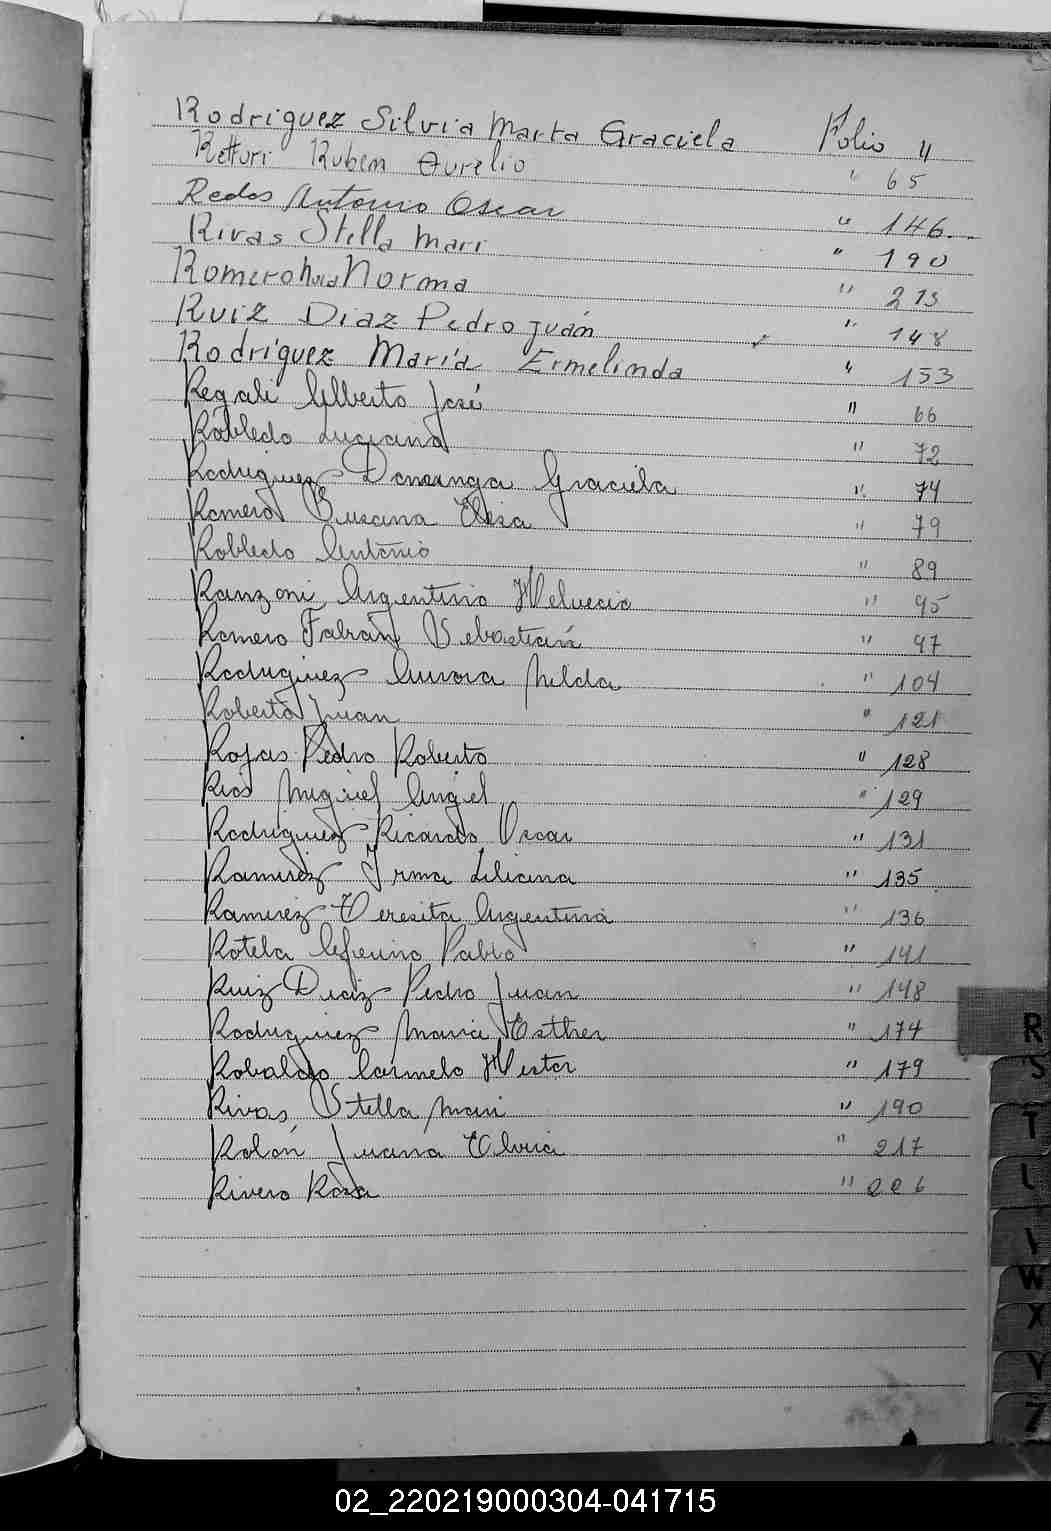 Rodriguez Silvia Marta Graciela Folio "
Rettori Ruben Aurelio " 65
Redes Antonio Oscar " 146.
Rivas Stella Mari " 190
Romero Norma " 215
Ruiz Diaz Pedro Juán " 148
Rodriguez María Ermelinda " 153
Regali Alberto José " 66
Robledo Luciana " 72
Rodriguez Domenga Graciela " 74
Romero Susana Elisa " 79
Robledo Antonio " 89
Ranzoni Argentino Helvecio " 95
Romero Fabian Sebastian " 97
Rodriguez Aurora Nilda " 104
Roberto Juan " 121
Rojas Pedro Roberto " 128
Rios Miguel Angel " 129
Rodriguez Ricardo Oscar " 131
Ramirez Irma Liliana " 135
Ramirez Teresita Argentina " 136
Rotela Ceferino Pablo " 141
Ruiz Diaz Pedro Juan " 148
Rodriguez Maria Esther " 174
Robaldo Carmelo Hector " 179
Rivas, Stella Mari " 190
Rolón Juana Elvira " 217
Rivero Rosa " 226
R
S
T
W
X
Y
Z
02_220219000304-041715